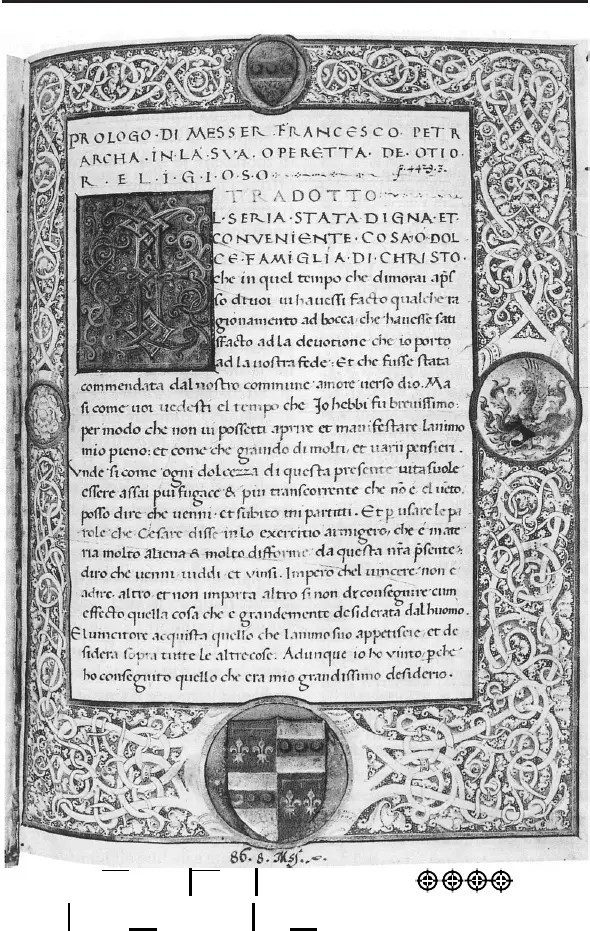 PROLOGO·DI MESSER FRANCESCO· PETR
ARCHA·IN·LA·SVA· OPERETTA· DE·OTIO·
R·E·L·I·G·I·O·S·O·
TRADOTTO
L·SERIA·STATA DIGNA·ET·
CONVENIENTE·COSA·O·DOL
CE·FAMIGLIA·DI·CHRISTO·
che in quel tempo che dimorai apſ
ſo di uoi ui haueſſi facto qualche ra
gionamento ad bocca, che haueſſe ſati
ſfacto ad la deuotione che io porto
ad la uoſtra fede· Et che fuſſe ſtata
commendata dal noſtro commune amore uerſo dio. Ma
ſi come uoi uedeſti el tempo che Io hebbi fu breuiſſimo:
per modo che non ui poſſetti aprire et manifeſtare lanimo
mio pieno: et come che grauido di molti, et uarii penſieri.
Vnde ſi come ogni dolcezza di queſta preſente uita ſuole
eſſere aſſai piu fugace & piu tranſcorrente che nõ e el ueto.
poſſo dire che uenni· et ſubito mi partiti. Et p uſare le pa
role che Ceſare diſſe in lo exercitio armigero, che e mate
ria molto aliena & molto difforme da queſta nr̃a pſente:
diro che uenni uiddi et uinſi. Impero chel uincere non e
adire altro, et non importa altro ſi non di conſeguire cum
effecto quella coſa che e grandemente deſiderata dal huomo.
El uincitore acquiſta quello che lanimo ſuo appetiſcie, et de
ſidera ſopra tutte le altre coſe. Adunque io ho uinto, pche
ho conſeguito quello che era mio grandiſſimo deſiderio.
86. 8. Mſſ.